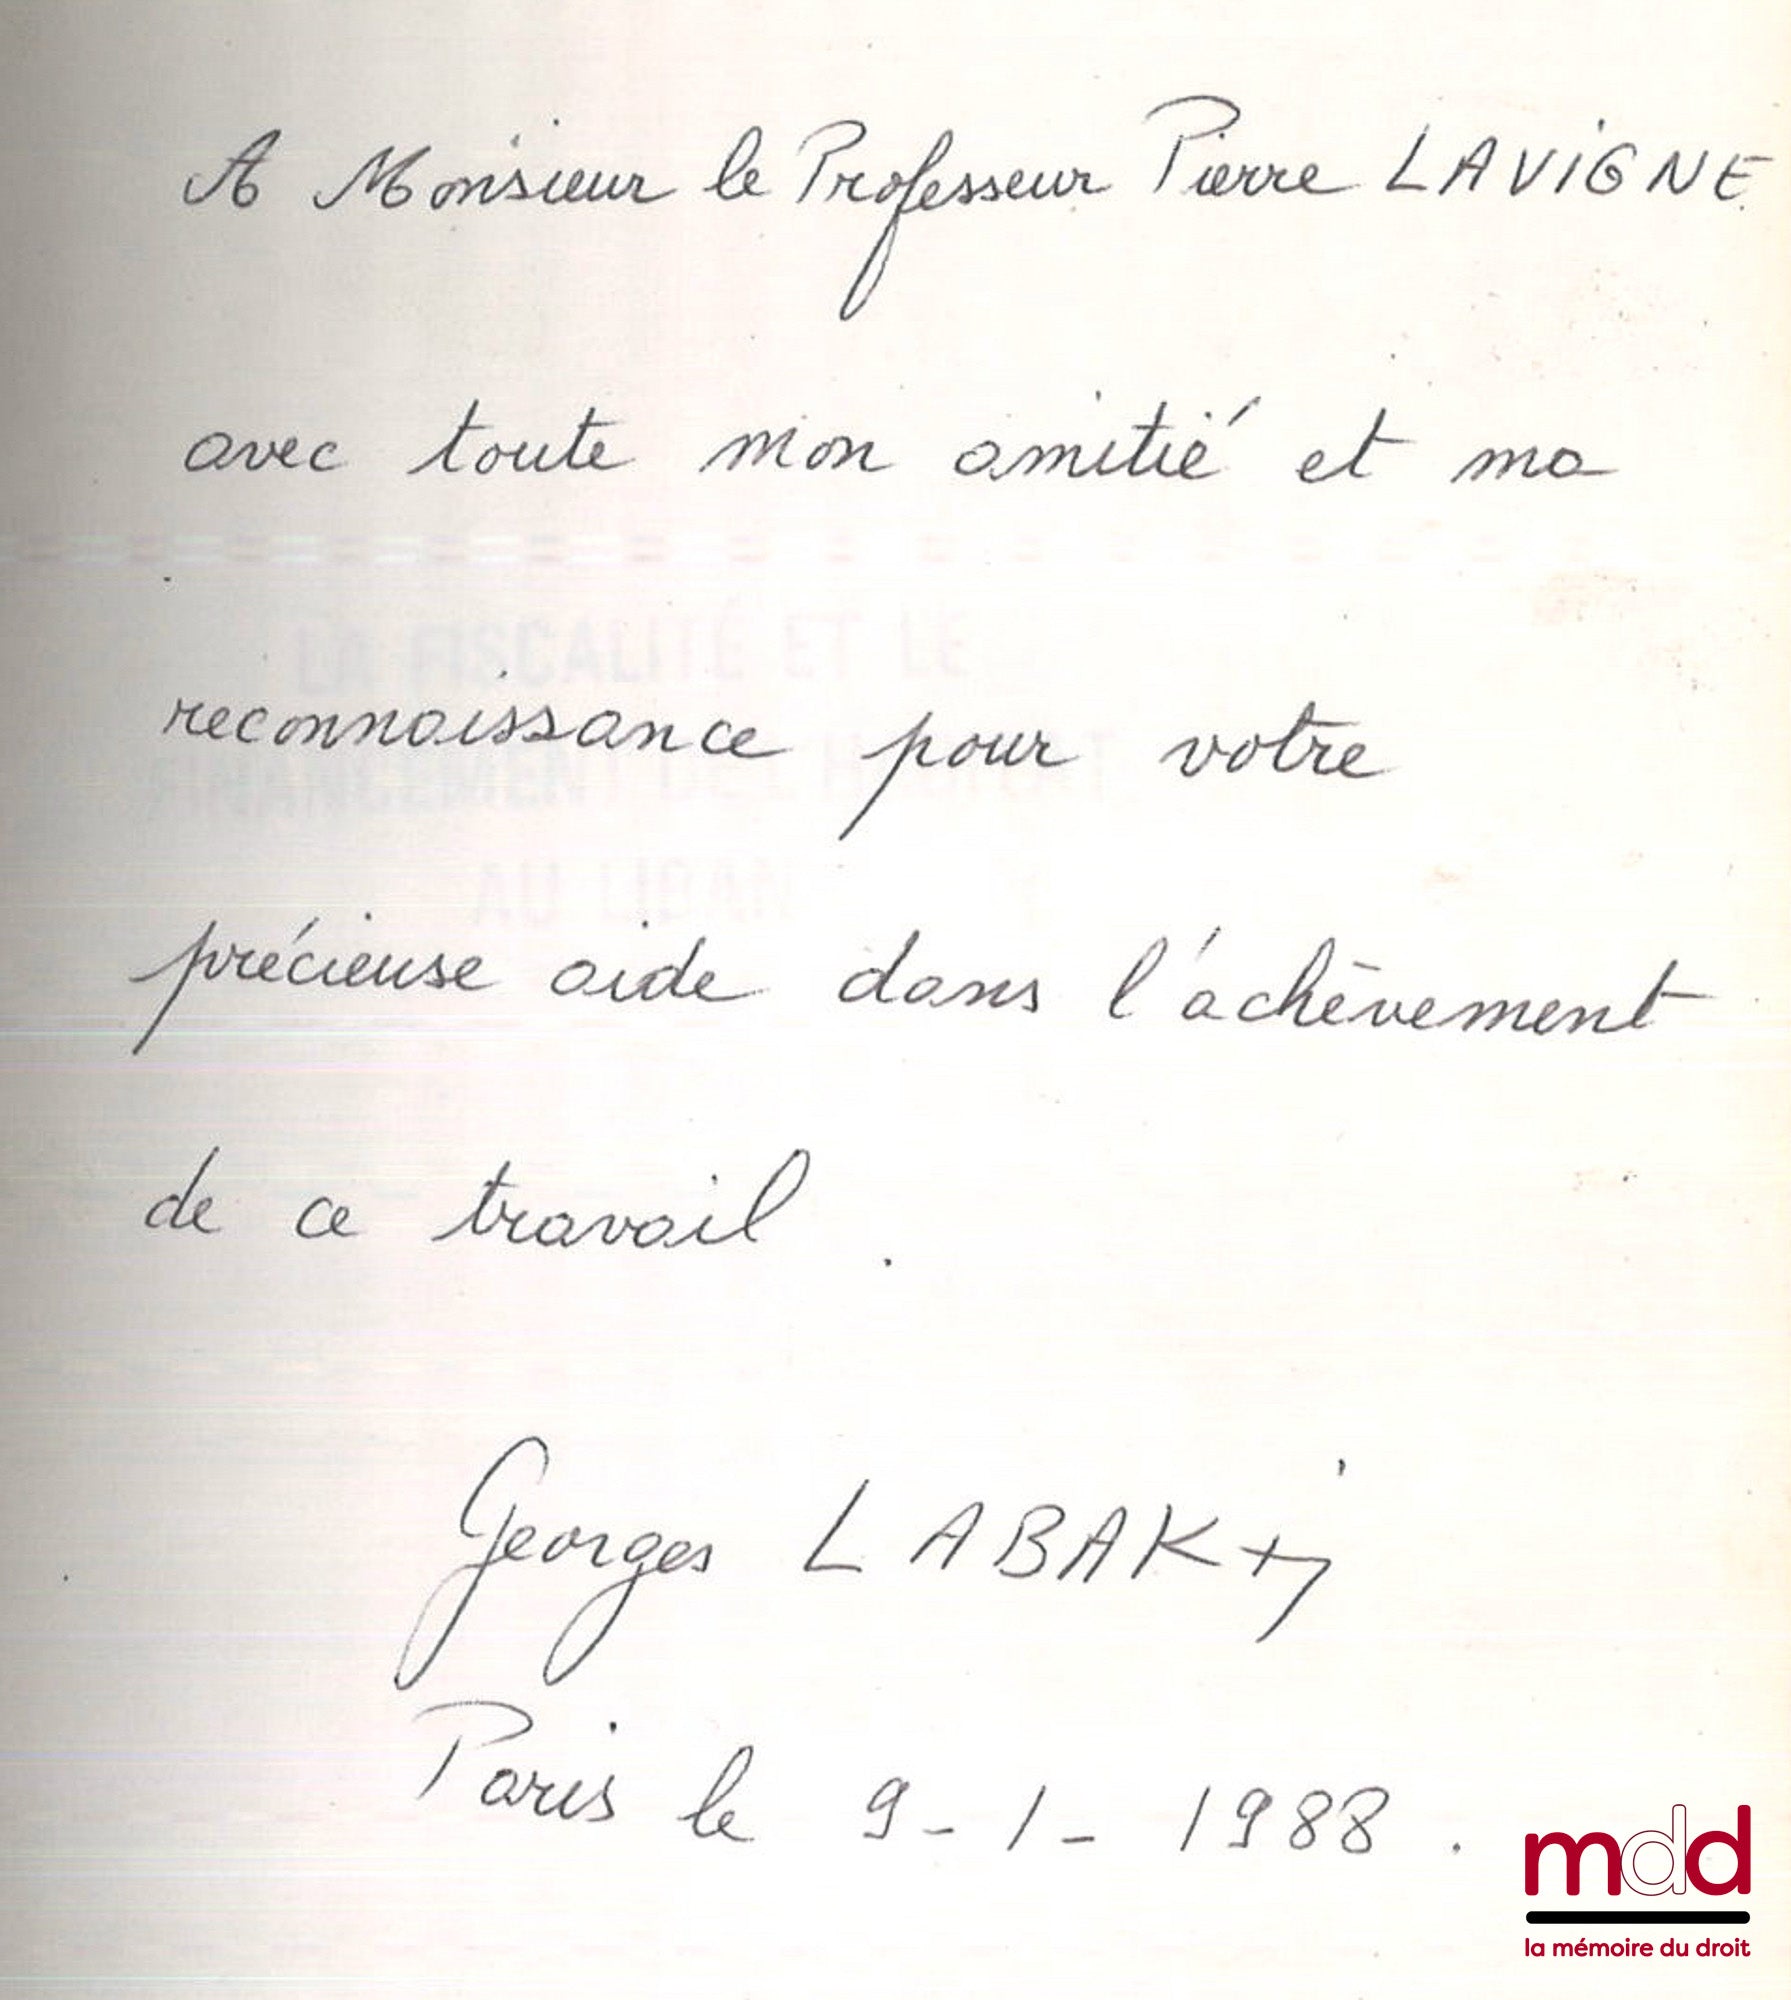 A Monsieur le Professeur Pierre LAVIGNE
avec toute mon amitié et ma
LA FISCALITÉ ET LE
reconnaissance pour votre
FINANCEMENT DE L'HABITAT
AU LIBAN
précieuse aide dans l'achèvement
de ce travail.
Georges LABAKi
Paris le 9-1-1988.
mdd
la mémoire du droit